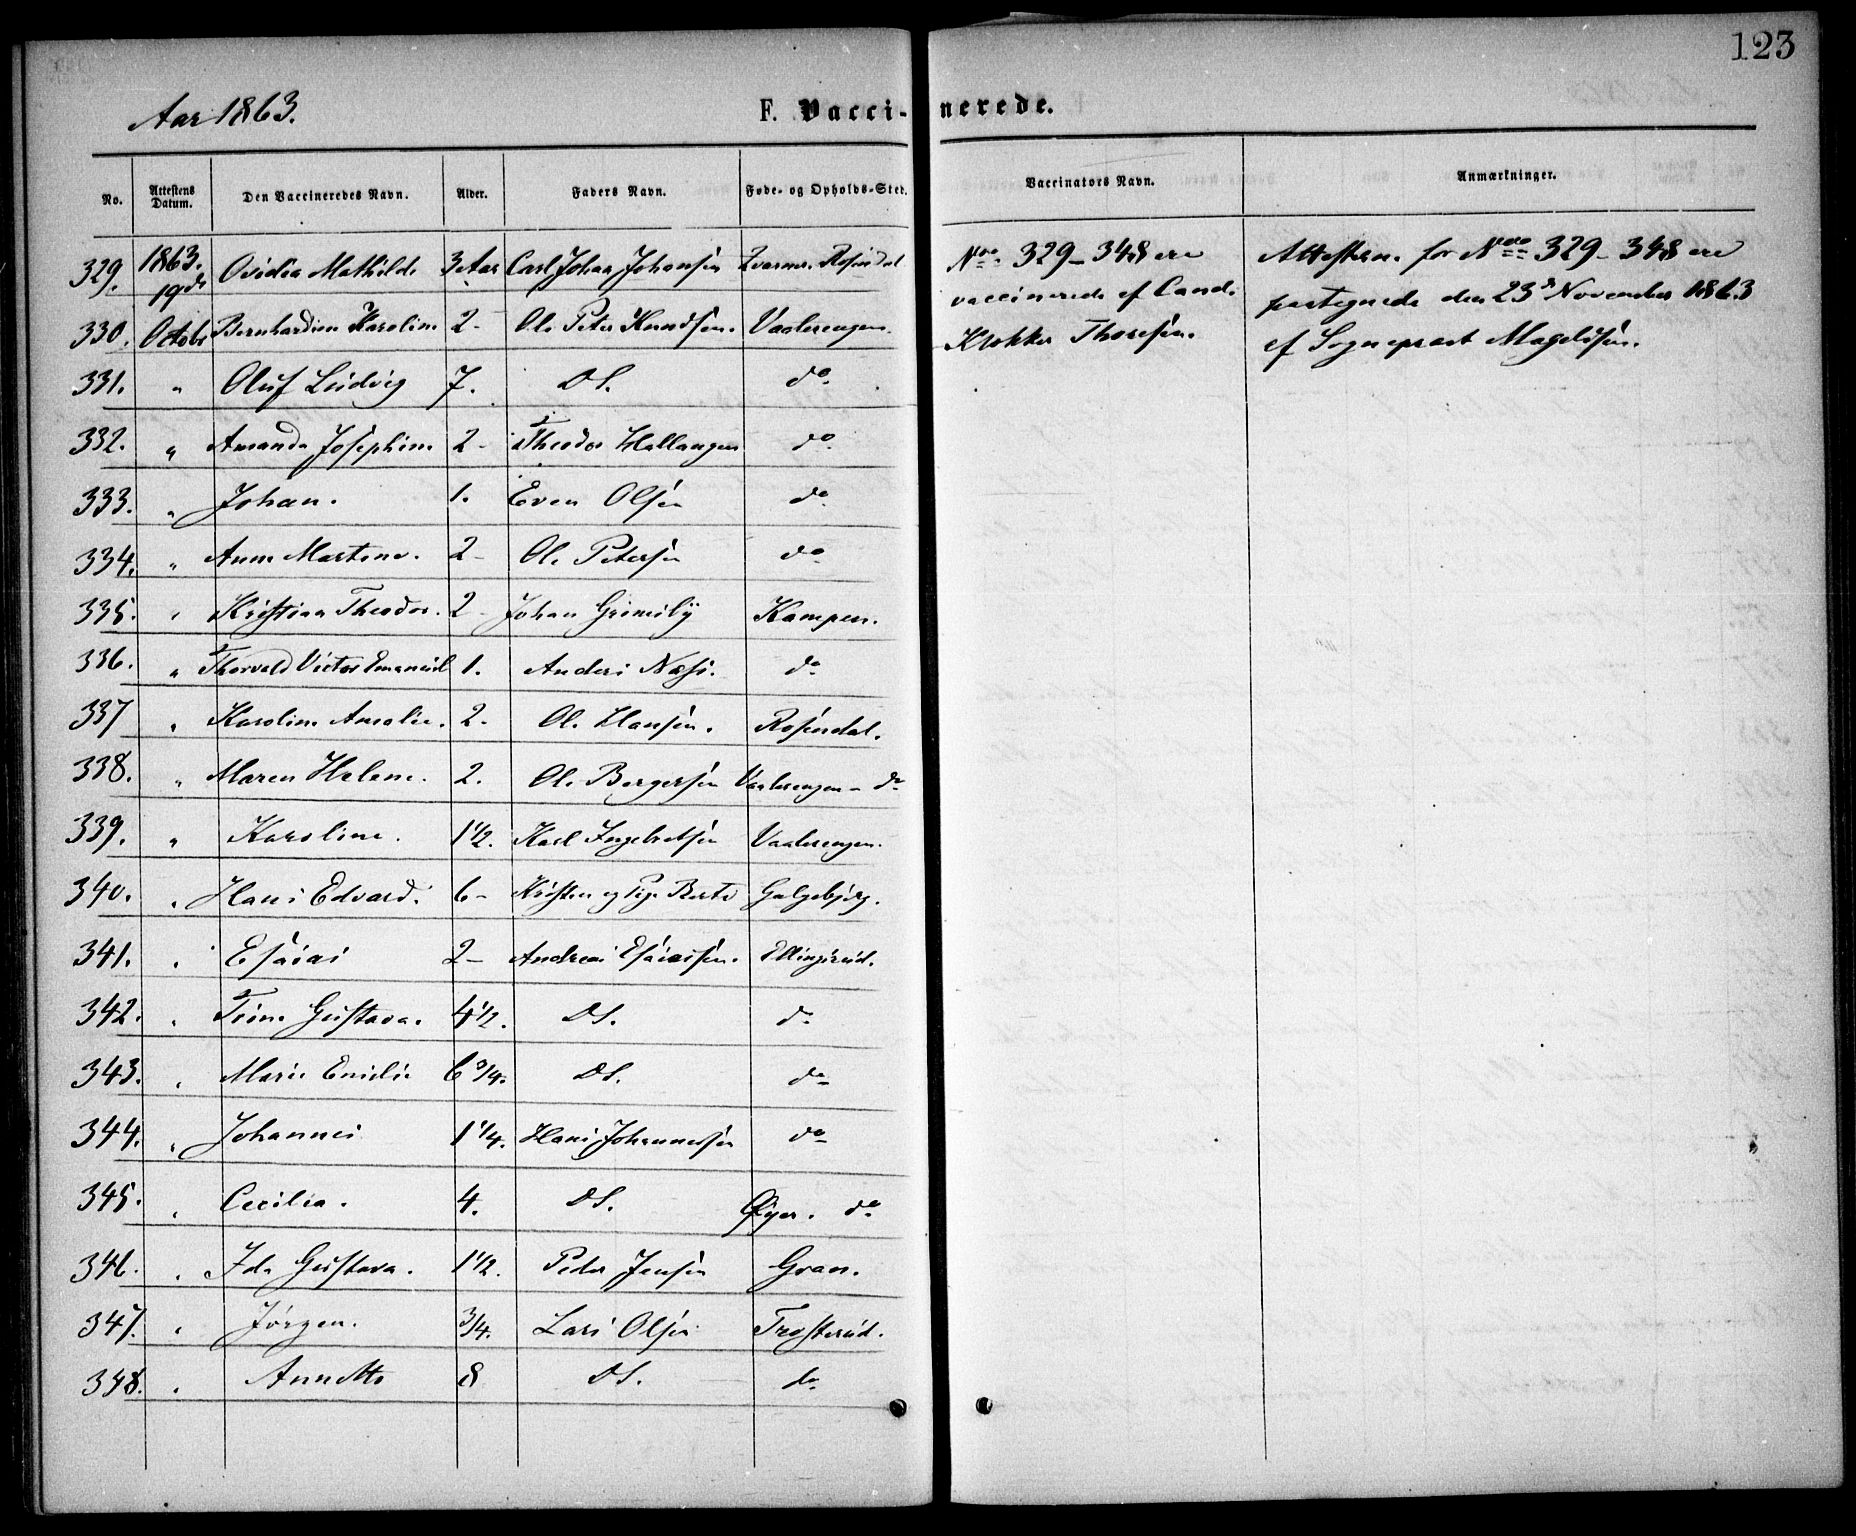 123
Aar 1863.
F. Vaccinerede.
No. Attestens Datum. Den Vaccineredes Navn. Alder. Faders Navn. Føde- og Opholds-Sted. Vaccinators Navn. Anmærkninger.
329. 1863. 19de Ovidia Mathilde 3 Aar Carl Johan Johansen Rosendal
330. Octobr Bernhardine Karoline 2- Ole Peter Knudsen. Vaalerengen.
331. " Oluf Ludvig 7. DS. do
332. " Amanda Josephine 2- Theodor Hallangen do
333. " Johan. 1. Even Olsen do
334. " Anne Martine. 2- Ole Petersen do
335. " Kristian Theodor. 2- Johan Grimsby Kampen.
336. " Thorvald Victor Emanuel 1. Anders Næss. do
337 " Karoline Amalie. 2- Ole Hansen. Rosendal.
338. " Maren Helene. 2. Ole Bergersen Vaalerengen - do
339. " Karoline. 1 1/2. Karl Ingebretsen Vaalerengen.
340. " Hans Edvard. 6- Kristen og Pige Berte Galgebjerg.
341. " Esaias 2- Andreas Esaiassen. Ellingsrud.
342. " Trine Gustava. 4 1/2. DS. do
343. " Marie Emilie 6 3/4. DS. do
344. " Johannes 1 1/4. Hans Johannessen do
345. " Cecilia. 4. DS. Øyer. do
346. " Ida Gustava. 1 1/2. Peder Jensen Gran.
347. " Jørgen. 3/4. Lars Olsen Trosterud.
348. " Annette 8 DS. do
Nroo 329-348 ere
vaccinerede af Cand.
Klokker Thoresen.
Attesterne for Nroo 329-348 ere
partegnede den 23de November 1863
af Sognepræst Magelssen.